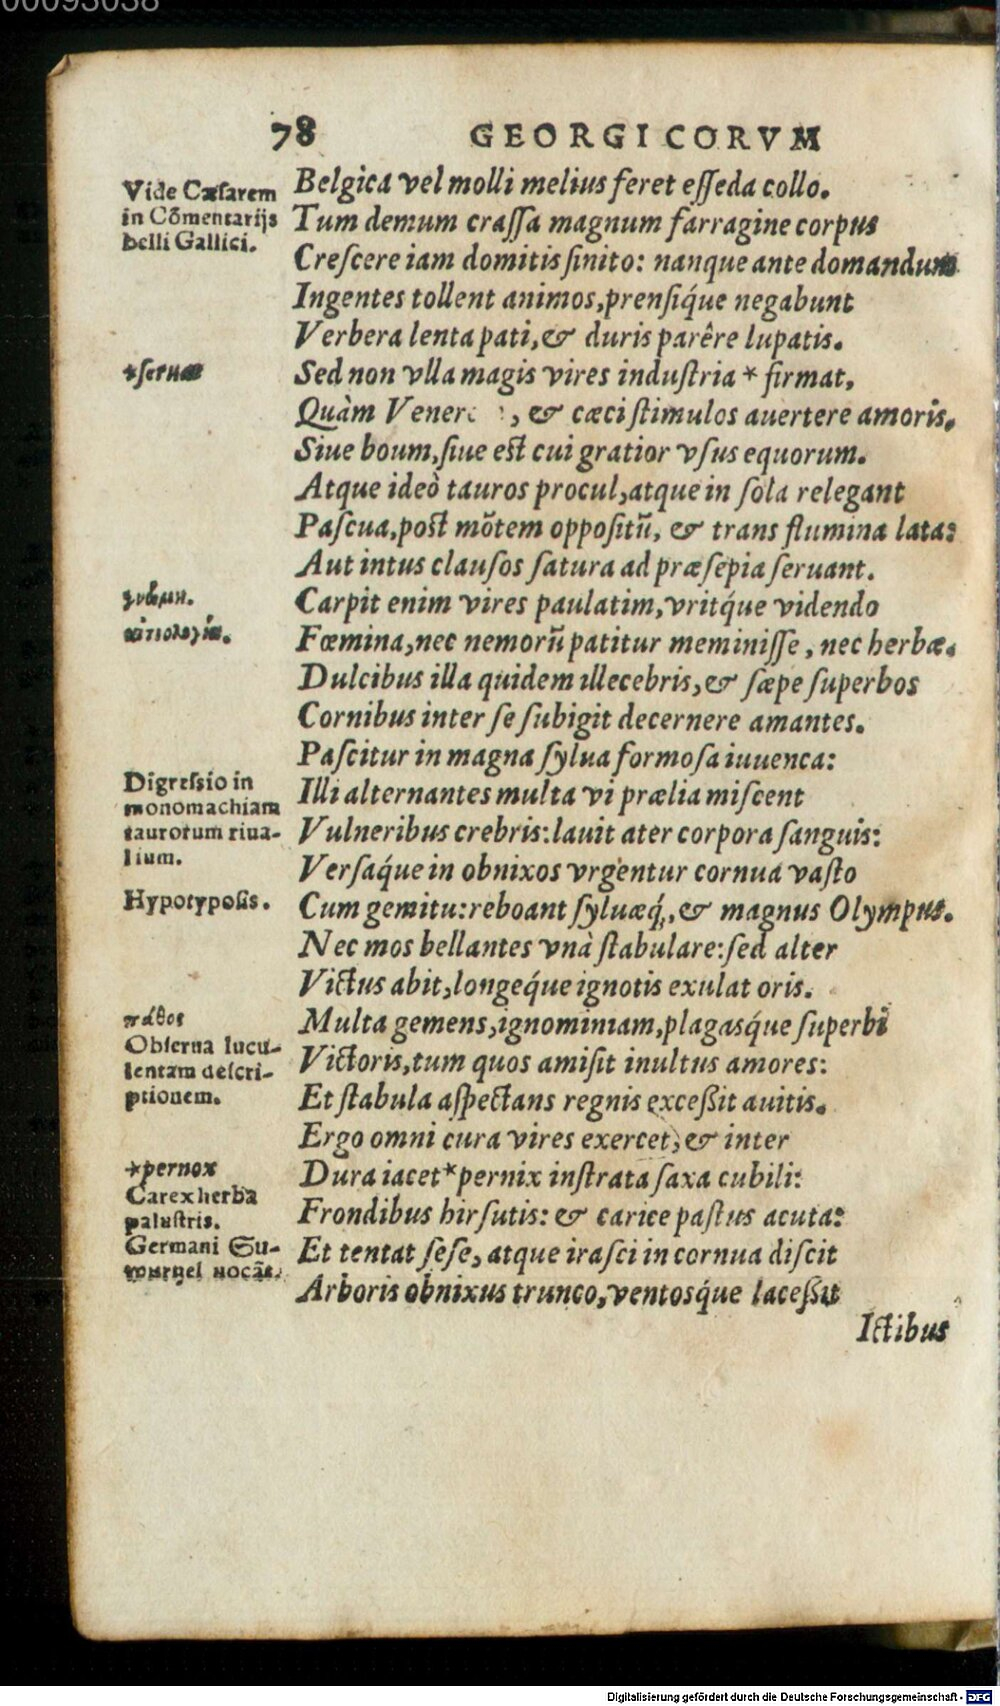 00093038
78 GEORGICORVM
Vide Cæſarem
in Cõmentarijs
belli Gallici.
Belgica vel molli melius feret eſſeda collo.
Tum demum craſſa magnum farragine corpus
Creſcere iam domitis ſinito: nanque ante domandum
Ingentes tollent animos, prenſiq́ue negabunt
Verbera lenta pati, & duris parêre lupatis.
*ſeruæ
Sed non vlla magis vires induſtria * firmat,
Quàm Vener , & cæci ſtimulos auertere amoris.
Siue boum, ſiue eſt cui gratior vſus equorum.
Atque ideò tauros procul, atque in ſola relegant
Paſcua, poſt mõtem oppoſitũ, & trans flumina lata:
Aut intus clauſos ſatura ad præſepia ſeruant.
γνώμη.
Carpit enim vires paulatim, vritq́ue videndo
αἰτιολογία.
Fœmina, nec nemorũ patitur meminiſſe, nec herbæ.
Dulcibus illa quidem illecebris, & ſæpe ſuperbos
Cornibus inter ſe ſubigit decernere amantes.
Paſcitur in magna ſylua formoſa iuuenca:
Digreſsio in
monomachiam
taurorum riua-
lium.
Illi alternantes multa vi prælia miſcent
Vulneribus crebris: lauit ater corpora ſanguis:
Verſaq́ue in obnixos vrgentur cornua vaſto
Hypotypoſis.
Cum gemitu: reboant ſyluæq́, & magnus Olympus.
Nec mos bellantes vnà ſtabulare: ſed alter
Victus abit, longeq́ue ignotis exulat oris.
πάθος
Multa gemens, ignominiam, plagasq́ue ſuperbi
Obſerua lucu-
lentam deſcri-
ptionem.
Victoris, tum quos amiſit inultus amores:
Et ſtabula aſpectans regnis exceßit auitis.
Ergo omni cura vires exercet, & inter
*pernox
Dura iacet * pernix inſtrata ſaxa cubili:
Carex herba
paluſtris.
Germani
uocãt.
Frondibus hirſutis: & carice paſtus acuta:
Et tentat ſeſe, atque iraſci in cornua diſcit
Arboris obnixus trunco, ventosq́ue laceßit
Ictibus
Digitalisierung gefördert durch die Deutsche Forschungsgemeinschaft - DFG